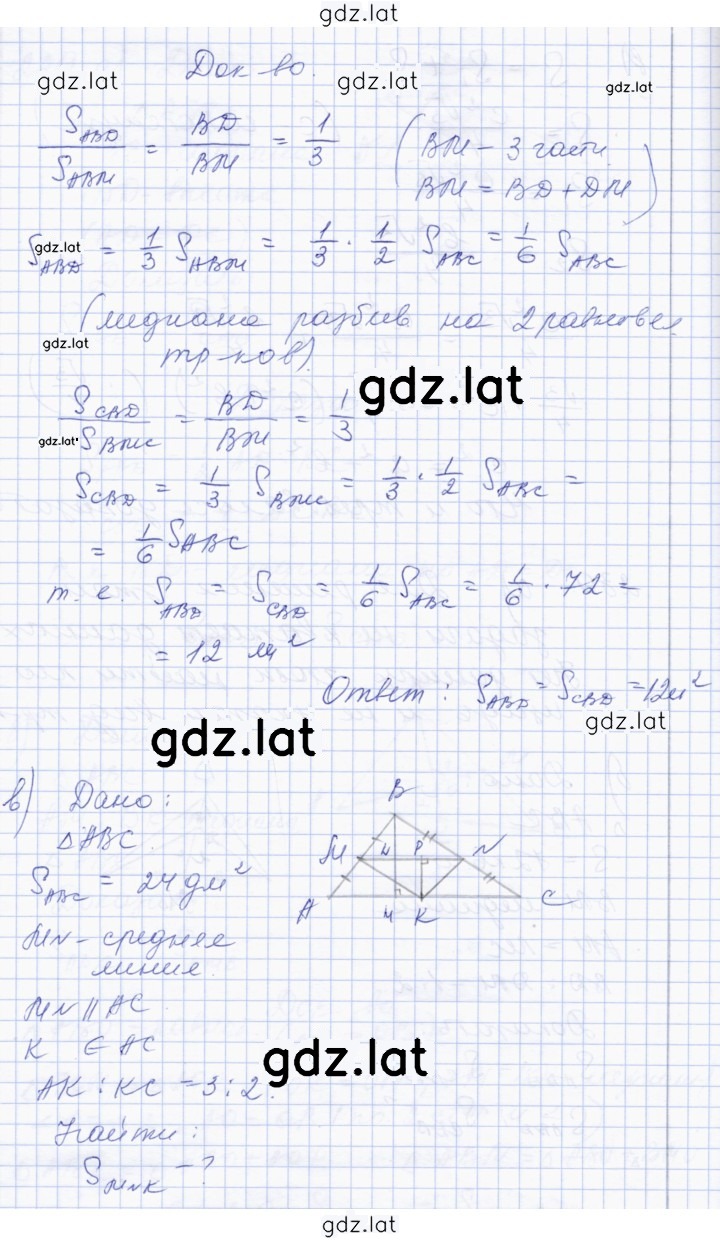 gdz.lat
Док-во.
gdz.lat gdz.lat gdz.lat
S_ABD / S_ABM = BD / BM = 1/3 (BM - 3 части.
BM = BD + DM)
gdz.lat
S_ABD = 1/3 S_ABM = 1/3 · 1/2 S_ABC = 1/6 S_ABC
(медиана разбив на 2 равновел
gdz.lat
тр-ков).
gdz.lat
S_CBD / S_BMC = BD / BM = 1/3
gdz.lat
S_CBD = 1/3 S_BMC = 1/3 · 1/2 S_ABC =
= 1/6 S_ABC
т. е. S_ABD = S_CBD = 1/6 S_ABC = 1/6 · 72 =
= 12 м²
Ответ: S_ABD = S_CBD = 12м²
gdz.lat
gdz.lat
в) Дано:
△ABC.
S_ABC = 24 дм²
MN - средняя
линия.
MN || AC.
K ∈ AC
AK : KC = 3 : 2.
Найти:
S_MNK - ?
B
M H P N
A H K C
gdz.lat
gdz.lat